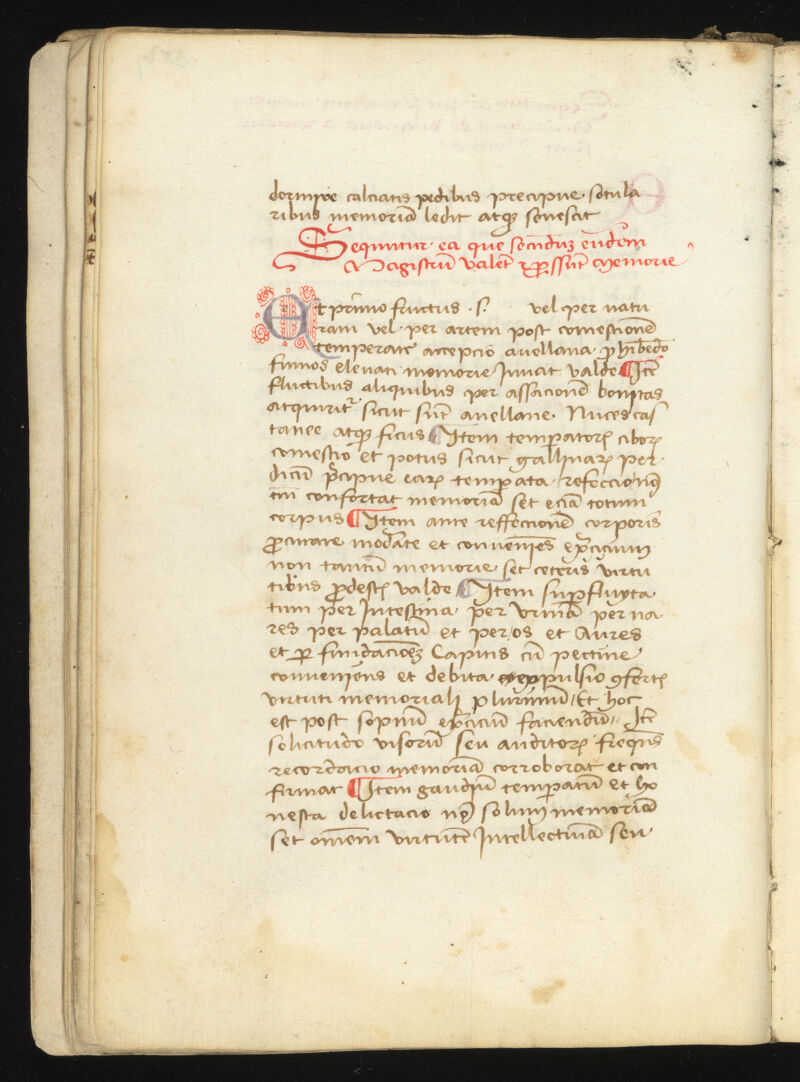 dormire calciatis pedibus precipue sotula
ribus memoriā ledit atqꝫ sonescit
Sequntur ea que scđuꝫ eundem
Magistrū valēt ꝓsunt memorie
Et primo fructus .s. vel per natu
ram vel per artem post comestionē
temperate accepcio auellana ꝓhibēdo
fumos eleuati memorie Juuat valde Itē
fluctibus aliquibus per assacionē bonitas
acquiritʳ sicut sūt auellane. Nuces cas
tanee atqꝫ ficus Item temperatoꝝ ciboꝝ
comestio et potus sicut gallinaꝝ per
dicū p̄cipue eaꝝ temperata refeccio nō
tm̄ confortat memoriā set eciā totum
corpus Item ante reffeccionē corporis
ꝓcurare mod̄ate et conueniēs ex̄cicium
non tantū memorie set ceteris virtu
tibus ꝓdest valde Item suꝑfluyta
tum per Intestina per vrinā per na
res per palatū et per os et Aures
et ꝑ fundacioēꝫ Capitis cū pectine
conueniens et debita expulsio ꝯfert
virtuti memoriali plurimū Et hoc
est post sopnū ex̄ciciū faciendū Itē
solicitudo visorū seu auditoꝝ freqūs
recordacio memoriā corroborat et con
firmat Item gaudiū temperatū et ho
nesta delictacio nō solum memoriā
set om̄em virtutē Intellectiuā seu